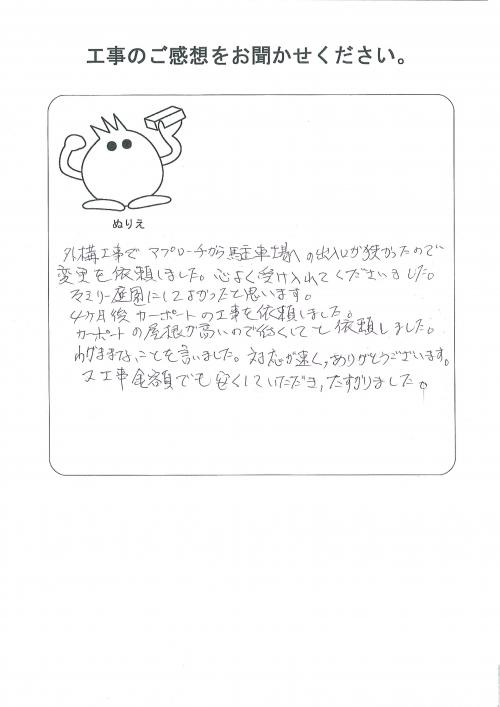 工事のご感想をお聞かせください。
ぬりえ
外構工事で アプローチから駐車場への出入口が狭かったので
変更を依頼しました。心よく受け入れてくださいました。
ファミリー庭園にしてよかったと思います。
4ヶ月後 カーポートの工事を依頼しました。
カーポートの屋根が高いので低くしてと依頼しました。
わがままなことを言いました。対応が速く,ありがとうございます。
又工事金額でも安くしていただき,たすかりました。